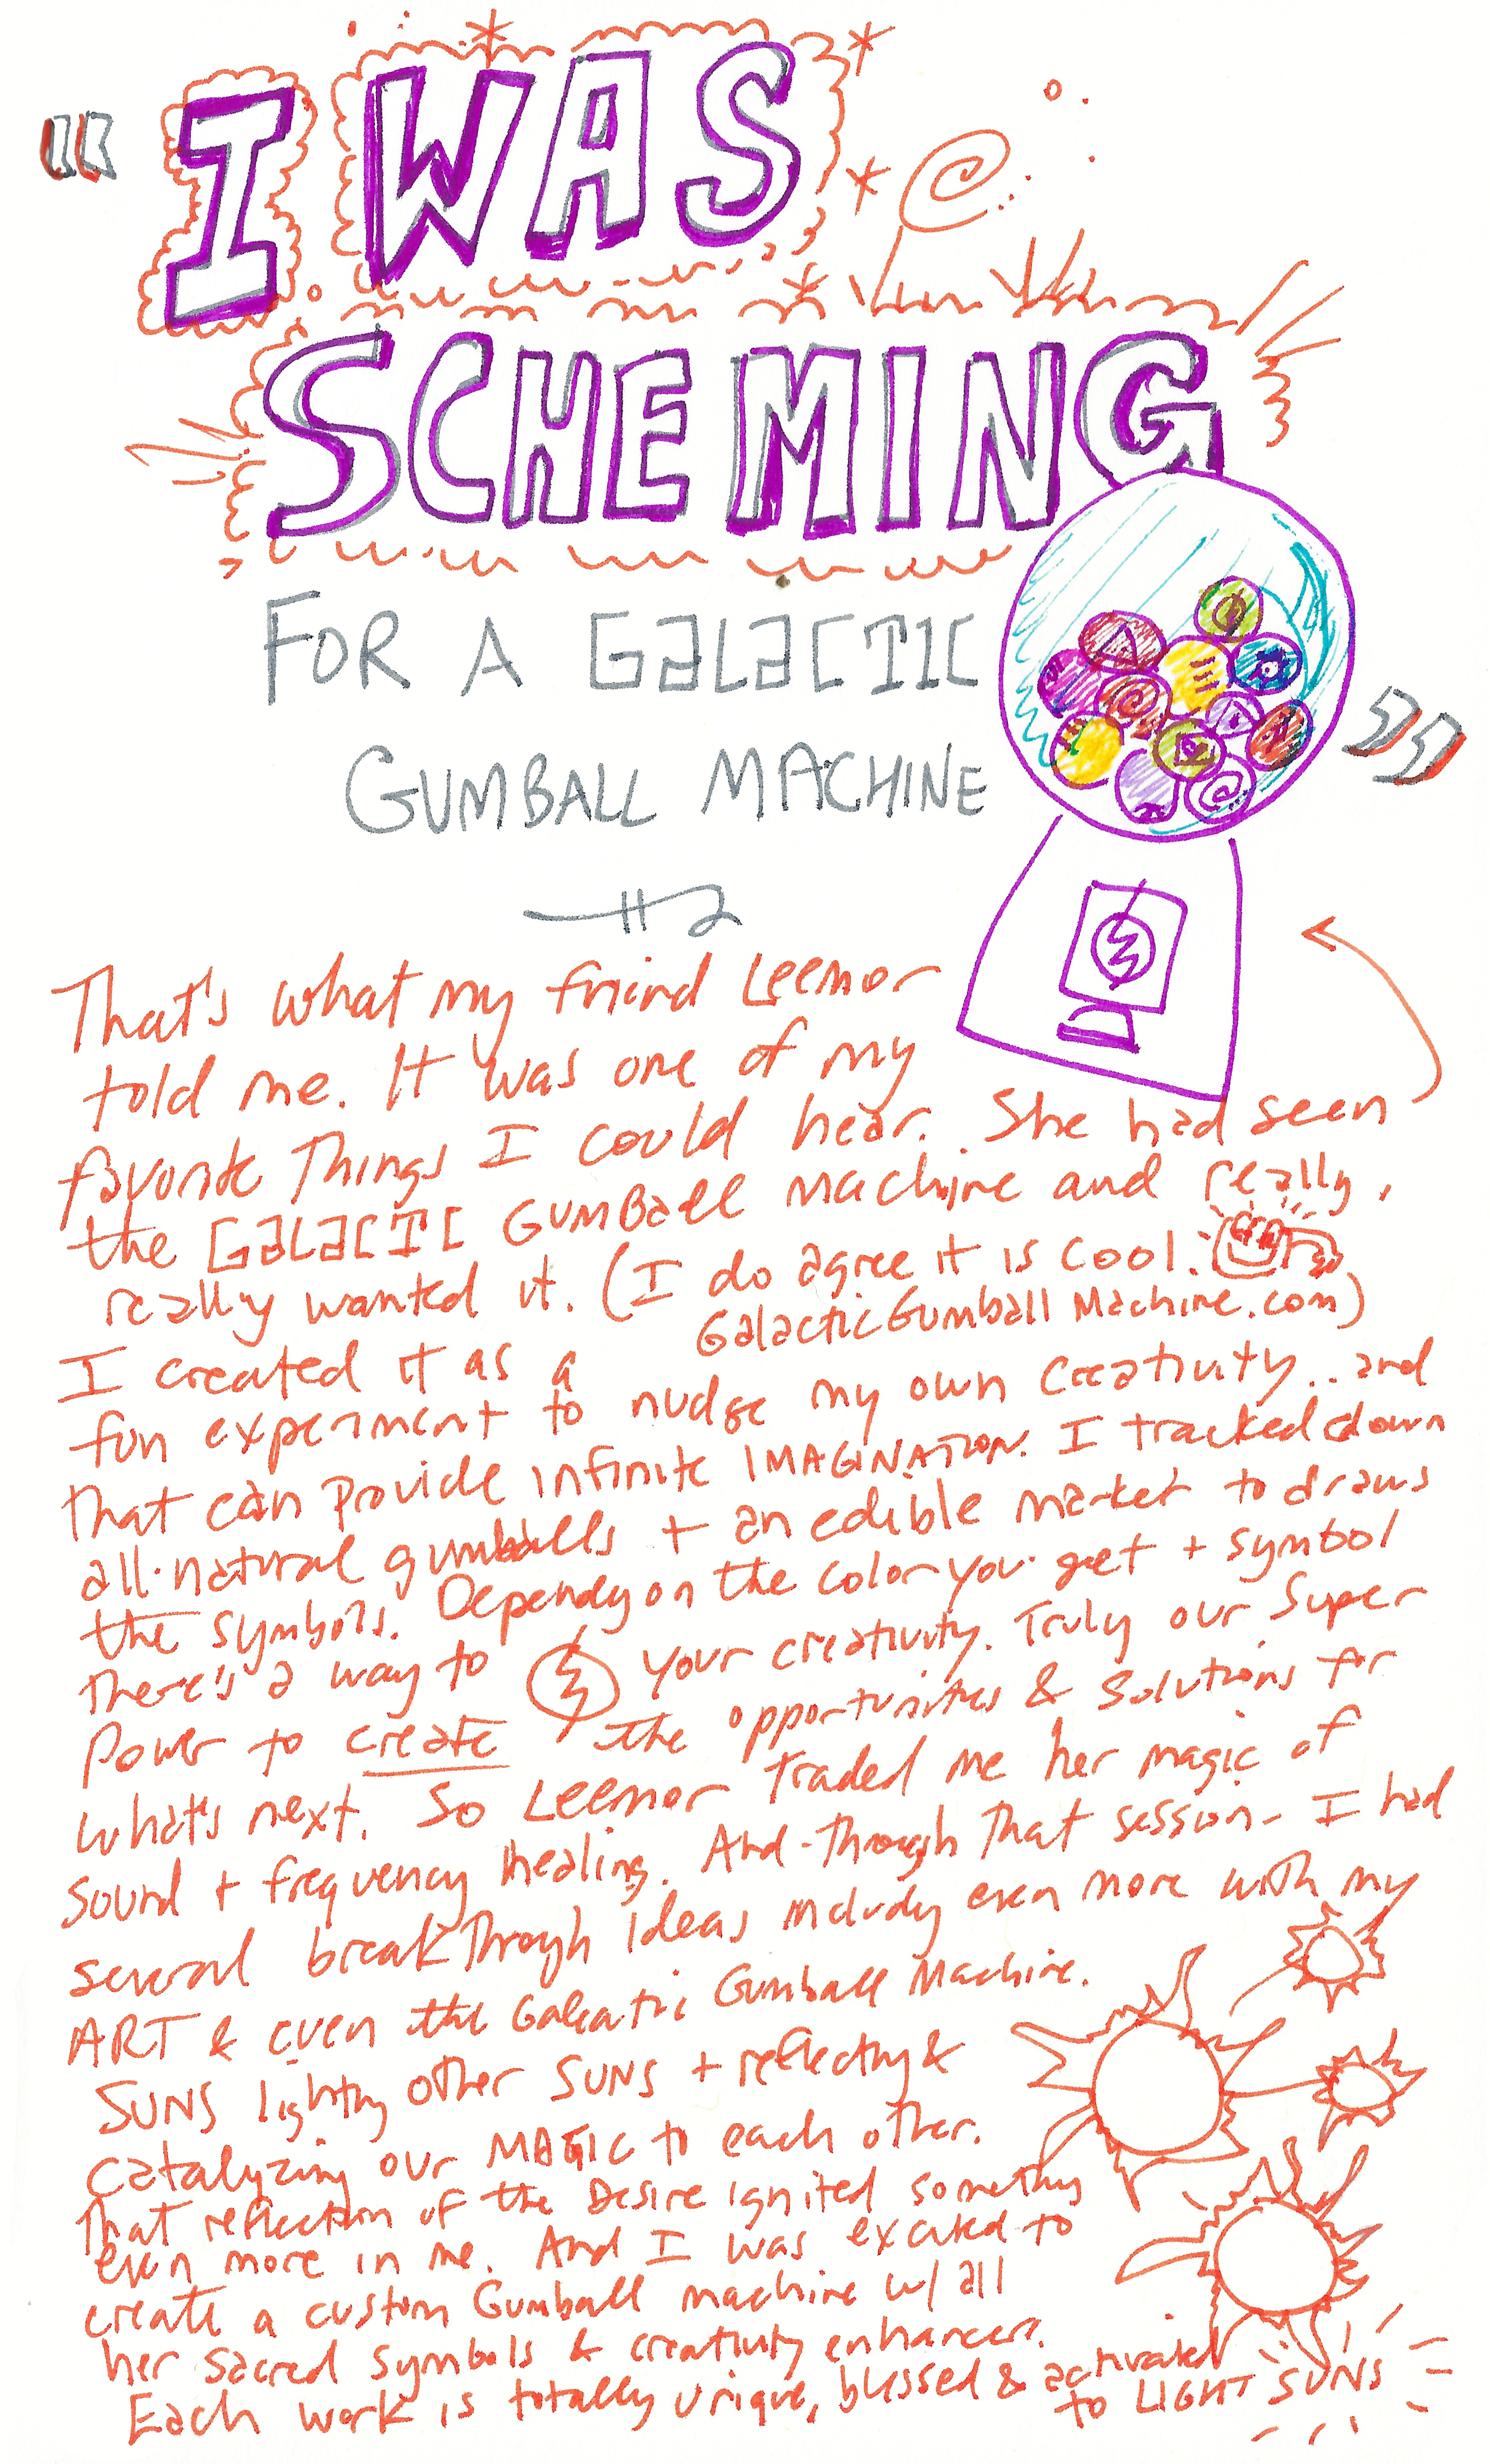 "I WAS
SCHEMING
FOR A GALACTIC
GUMBALL MACHINE"
That's what my friend Leemor
told me. It was one of my
favorite Things I could hear. She had seen
the GALACTIC GUMBALL Machine and really,
really wanted it. (I do agree it is cool.
GalacticGumballMachine.com)
I created it as a
fun experiment to nudge my own creativity.. and
that can provide infinite IMAGINATION. I tracked down
all-natural gumballs + an edible market to draws
the symbols. Dependg on the color you get + symbol
there's a way to your creativity. Truly our Super
Power to create the opportunities & solutions for
what's next. So Leemor traded me her magic of
sound + frequency healing. And-through that session- I had
several breakthrough ideas includg even more with my
ART & even the Galactic Gumball Machine.
SUNS lightng other SUNS + reflectng &
catalyzing our MAGIC to each other.
That reflection of the Desire ignited somethg
even more in me. And I was excited to
create a custom Gumball machine w/ all
her sacred symbols & creativity enhancers.
Each work is totally unique, blessed & activated
to LIGHT SUNS